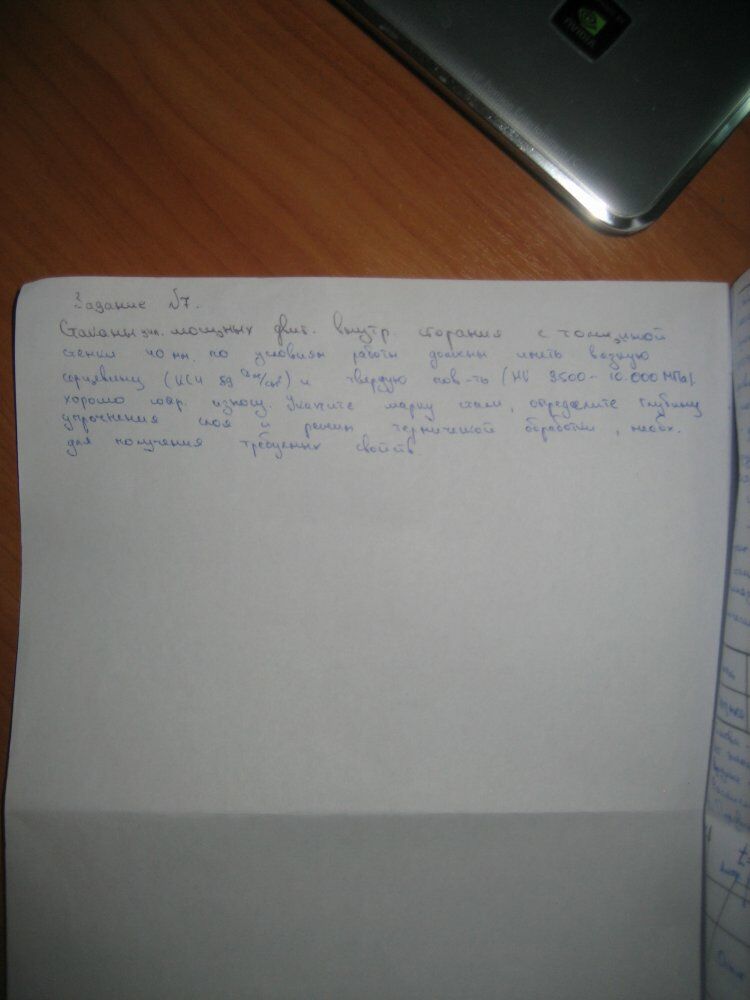 NVIDIA
Задание №7.
Стаканы цил. мощных двиг. внутр. сгорания с толщиной
стенки 40 мм. по условиям работы должны иметь вязкую
сердцевину (КСИ 89 Дж/см²) и твердую пов-ть (HV 9500-10.000 МПа)
хорошо износу. Укажите марку стали, определите глубину
упрочнения слоя и режим термической обработки, необх.
для получения требуемых свойств.